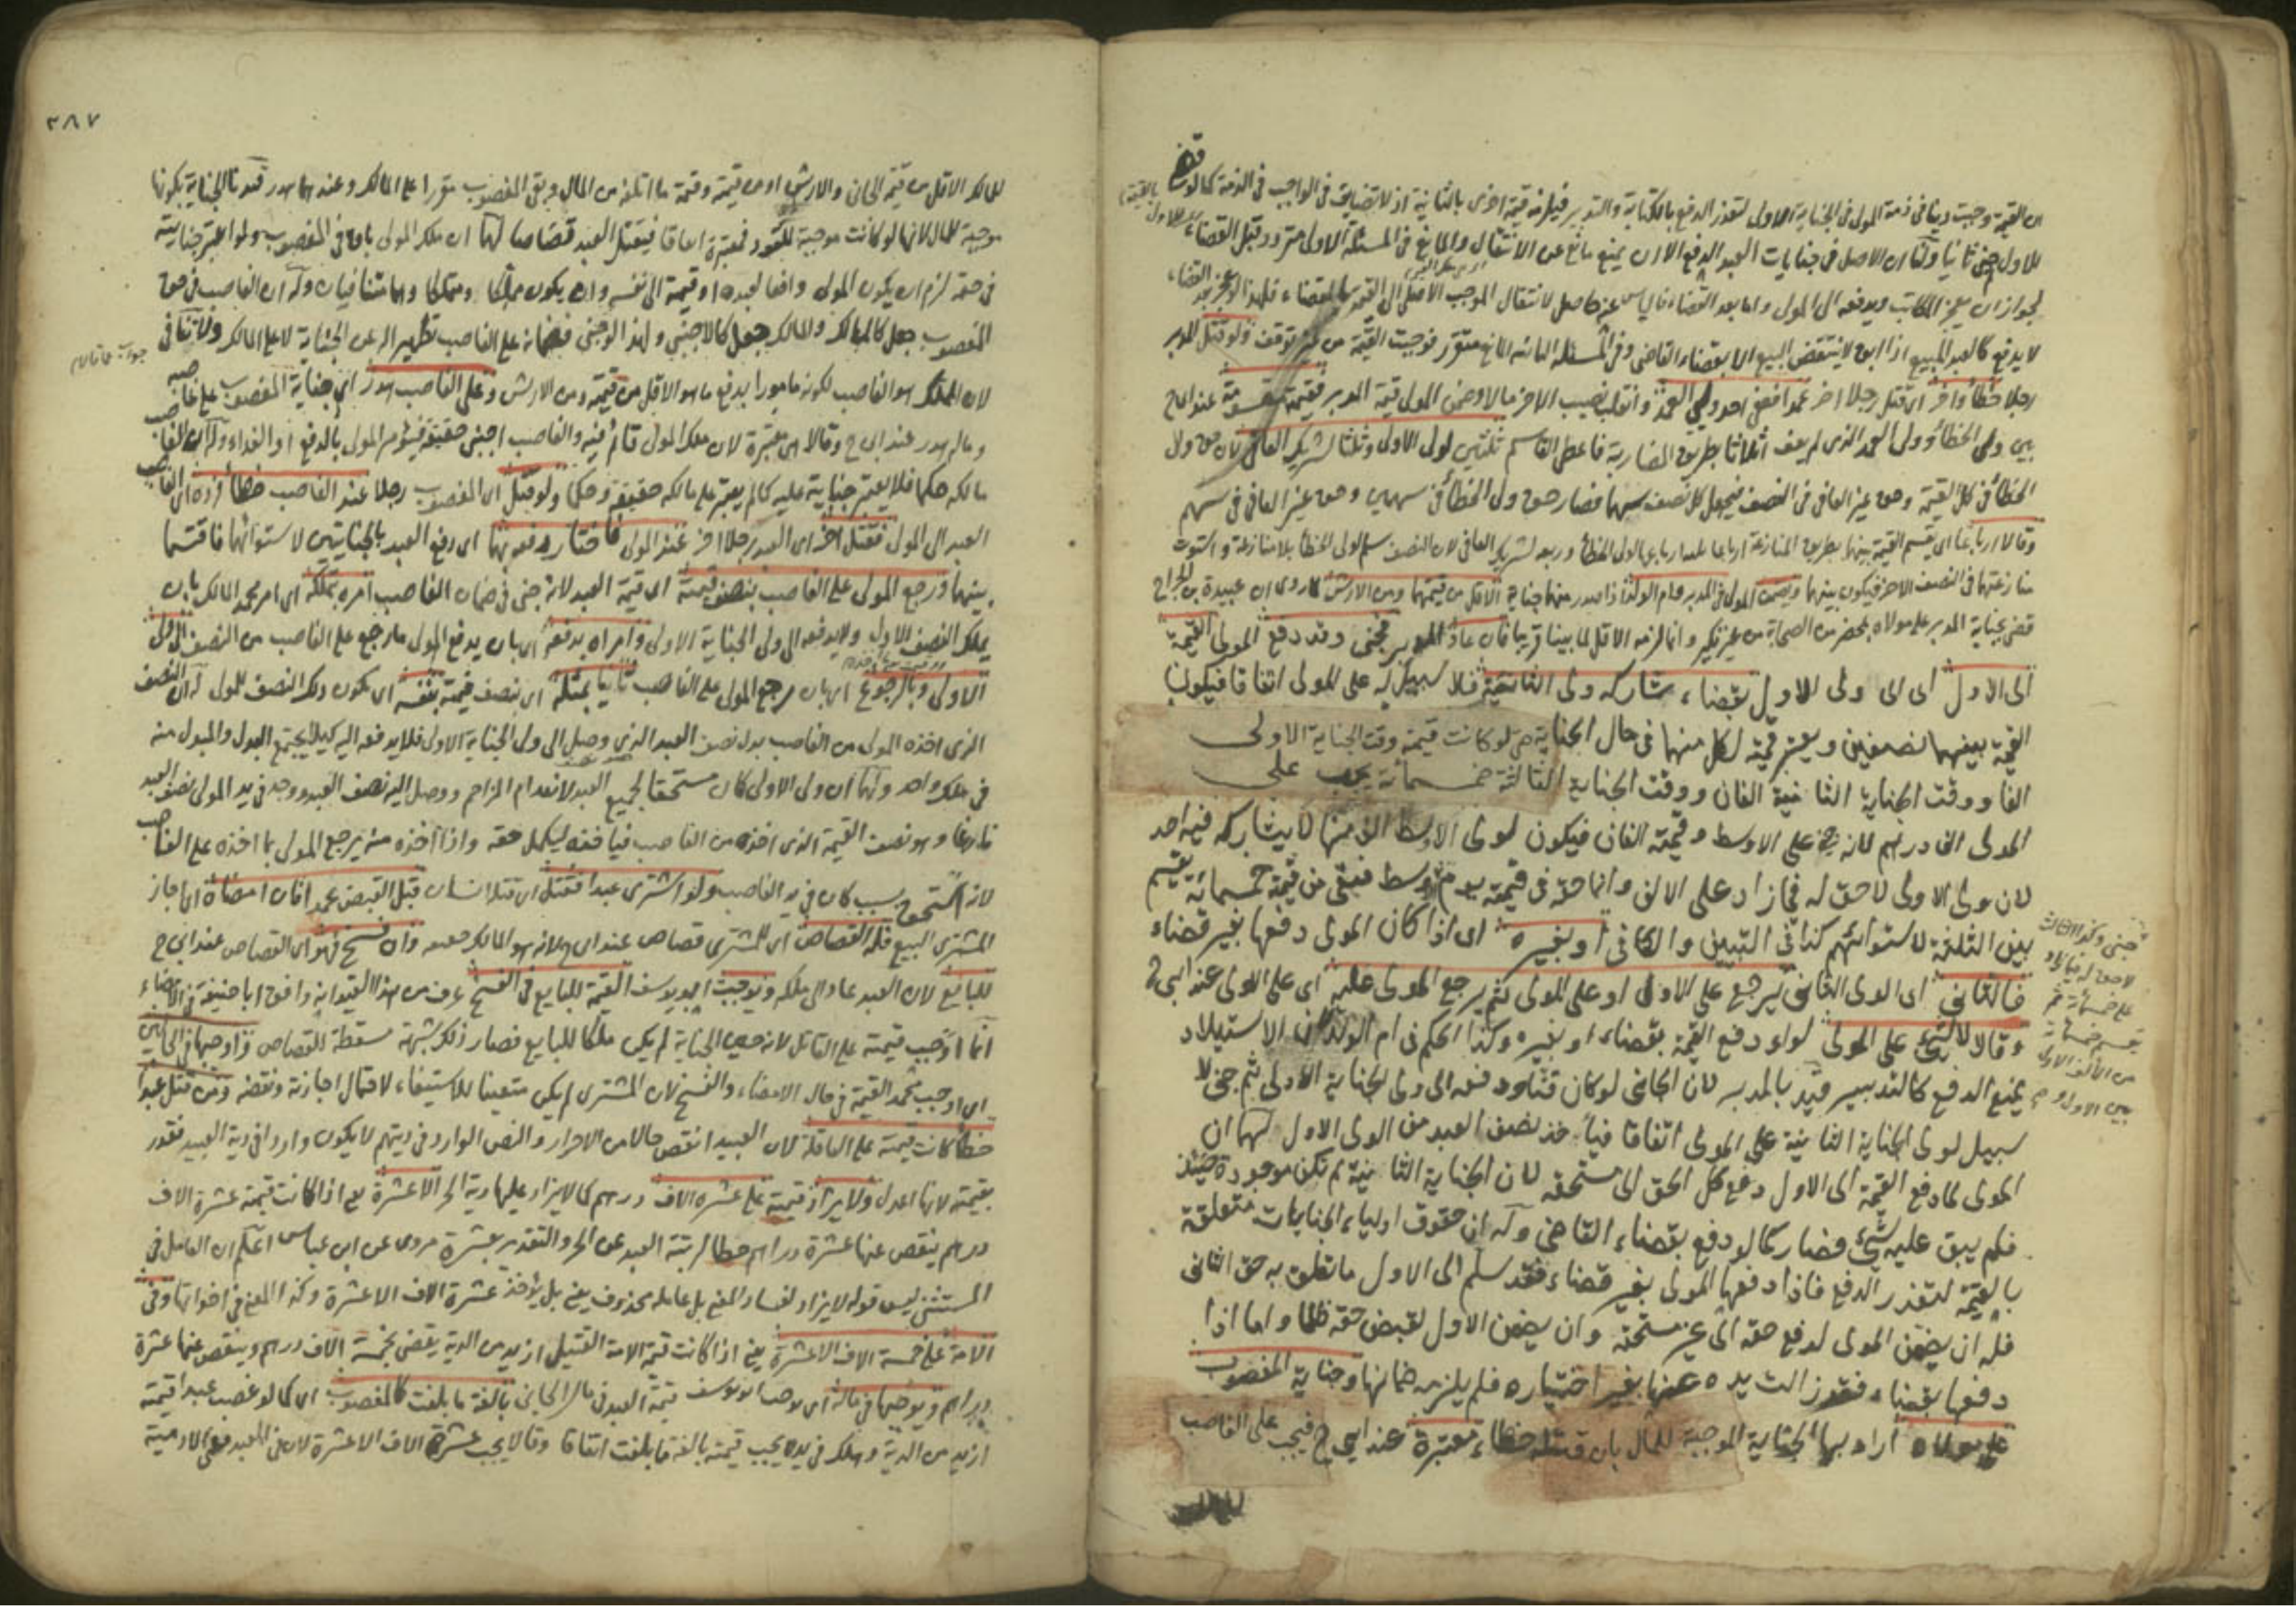 ان القيمة وجبت دينا في ذمة المولى في الجناية الاولى لتعذر الدفع بالكتابة والتدبير فيلزمه قيمة اخرى بالثانية اذ لا تضايق في الواجب في الذمة كما لو
للاول جنى ثانيا ولنا ان الاصل في جنايات العبد الدفع الا ان يمنع مانع عن الانتقال والمانع في المسئلة الاولى متردد قبل القضاء
لجواز ان يعجز المكاتب ويدفعه الى المولى واما بعد القضاء لانتقال الموجب الاصلي الى القيمة بالقضاء فلهذا
لا يدفع كالعبد المبيع اذا ابق لا ينتقض البيع الا بقضاء القاضي وفي المسئلة الثانية المانع متقرر فوجبت القيمة من غير توقف ولو قتل المدبر
رجلا خطأ واخر اي قتل رجلا اخر عمدا فعفى احد ولي العمد وانقلب نصيب الاخر مالا وضمن المولى قيمة المدبر فقيمته عند ابي ح
بين ولي الخطأ وولي العمد الذي لم يعف اثلاثا بطريق المضاربة فاعطى القاسم ثلثين لولي الاولى وثلثا لشريك العافي لان حق ولي
الخطأ في كل القيمة وحق غير العافي في النصف فيجعل كل نصف سهما فصار حق ولي الخطأ في سهمين وحق غير العافي في سهم
وقالا ارباعا اي تقسم القيمة بينهما بطريق المنازعة ارباعا ثلثة ارباعها لولي الخطأ وربعه لشريك العافي لان النصف سلم لولي الخطأ بلا منازعة واستوت
منازعتهما في النصف الاخر فيكون بينهما ويضمن المولى في المدبر وام الولد اذا صدر منهما جناية الاقل من قيمتهما ومن الارش لما روي ان عبيدة بن الجراح
قضى بجناية المدبر على مولاه بمحضر من الصحابة من غير نكير وانما لزمه الاقل لما بينا قريبا فان عاد المدبر فجنى وقد دفع المولى القيمة
الى الاول اي الى ولي الاول بقضاء شاركه ولي الثانية فلا سبيل له على المولى اتفاقا فيكون
القيمة بينهما نصفين ويعتبر قيمته لكل منهما في حال الجناية حتى لو كانت قيمته وقت الجناية الاولى
الفا ووقت الجناية الثانية الفان ووقت الجناية الثالثة خمسمائة يجب على
المولى الفا درهم لانه جنى على الاوسط وقيمته الفان فيكون لولي الاوسط الف منها لا يشاركه فيه احد
لان ولي الاولى لا حق له فيما زاد على الالف وانما حقه في قيمته
بين الثلثة لاستوائهم كذا في التبيين والكافي او بغيره اي اذا كان المولى دفعها بغير قضاء
فالثاني اي الولي الثاني يرجع على الاول او على المولى ثم يرجع المولى عليه اي على الاول عند ابي ح
وقالا لا شيء على المولى سواء دفع القيمة بقضاء او بغيره وكذا الحكم في ام الولد لان الاستيلاد
يمنع الدفع كالتدبير قيد بالمدبر لان الجاني لو كان قنا ودفعه الى ولي الجناية الاولى ثم جنى لا
سبيل لولي الجناية الثانية على المولى اتفاقا فيأخذ نصف العبد من الولي الاول لهما ان
المولى لما دفع القيمة الى الاول دفع كل الحق الى مستحقه لان الجناية الثانية لم تكن موجودة حينئذ
فلم يبق عليه شيء فصار كما لو دفع بقضاء القاضي وله ان حقوق اولياء الجنايات متعلقة
بالقيمة لتعذر الدفع فاذا دفعها المولى بغير قضاء فقد سلم الى الاول ما تعلق به حق الثاني
فله ان يضمن المولى لدفع حقه الى غير مستحقه وان يضمن الاول لقبض حقه ظلما واما اذا
دفعها بقضاء فقد زالت يده عنها بغير اختياره فلم يلزمه ضمانها وجناية المغصوب
على مولاه اراد بها الجناية الموجبة للمال بان قتله خطاء معتبرة عند ابي ح فيجب على الغاصب
٣٨٧
للمالك الاقل من قيمة الجاني والارش او من قيمته وقيمة ما اتلفه من المال وبقي المغصوب مقررا على المالك وعندهما هدر قيدنا الجناية بكونها
موجبة للمال لانها لو كانت موجبة للقود فمعتبرة اتفاقا فيقتل العبد قصاصا لهما ان ملك المولى باق في المغصوب ولو اعتبر جنايته
في حقه لزم ان يكون المولى دافعا لعبده او قيمته الى نفسه وان يكون مملكا ومتملكا وهما متنافيان وله ان الغاصب في حق
المغصوب جعل كالمالك والمالك جعل كالاجنبي ولهذا لو جنى فضمانه على الغاصب
لان المملك هو الغاصب لكونه مامورا بدفع ما هو الاقل من قيمته ومن الارش وعلى الغاصب هدر اي جناية المغصوب على غاصبه
وماله هدر عند ابي ح وقالا هي معتبرة لان ملك المولى قائم فيه والغاصب اجنبي حقيقة فيؤمر المولى بالدفع او الفداء وله ان الغاصب
مالكه حكما فلا يعتبر جنايته عليه كما لم يعتبر على مالكه حقيقة وحكما ولو قتل اي المغصوب رجلا عند الغاصب خطأ فرده اي الغاصب
العبد الى المولى فقتل اخر اي العبد رجلا اخر عند المولى فاختار دفعه بهما اي دفع العبد بالجنايتين لاستوائهما فاقتسما
بينهما ورجع المولى على الغاصب بنصف قيمته اي قيمة العبد لانه جنى في ضمان الغاصب امره بتملكه اي امر محمد المالك بان
يملك النصف الاول ولا يدفعه الى ولي الجناية الاولى وامراه بدفعه اي بان يدفع المولى ما رجع على الغاصب من النصف الى ولي
الاولى وبالرجوع اي بان يرجع المولى على الغاصب ثانيا بمثله اي بنصف قيمته اي يكون ذلك النصف للمولى له ان النصف
الذي اخذه المولى من الغاصب بدل نصف العبد الذي وصل الى ولي الجناية الاولى فلا يدفعه اليه كيلا يجتمع البدل والمبدل منه
في ملك واحد ولهما ان ولي الاولى كان مستحقا لجميع العبد لانعدام المزاحم ووصل اليه نصف العبد ووجد في يد المولى نصف العبد
فارغا وهو نصف القيمة الذي اخذه من الغاصب فيأخذه ليكمل حقه واذا اخذه منه يرجع المولى بما اخذه على الغاصب
لانه استحق بسبب كان في يد الغاصب ولو اشترى عبدا فقتل اي قتله انسان قبل القبض عمدا فان امضاه اي اجاز
المشتري البيع فله القصاص اي للمشتري قصاص عند ابي ح لانه هو المالك حينئذ وان فسخ فهو اي القصاص عند ابي ح
للبايع لان العبد عاد الى ملكه ويوجب ابو يوسف القيمة للبايع في الفسخ عرف من هذا القيد انه وافق ابا حنيفة في الامضاء
انما اوجب قيمته على القاتل لانه حين الجناية لم يكن ملكا للبايع فصار ذلك شبهة مسقطة للقصاص واوجبها في الحالين
اي اوجب محمد القيمة في حال الامضاء والفسخ لان المشتري لم يكن متعينا للاستيفاء لاحتمال اجازته ونقضه ومن قتل عبدا
خطأ كانت قيمته على العاقلة لان العبيد انقص حالا من الاحرار والنص الوارد في ديتهم لا يكون واردا في دية العبيد فقدر
بقيمته لانها اعدل ولا يزاد قيمته على عشرة الاف درهم كما لا يزاد عليها دية الحر الا عشرة يعني اذا كانت قيمته عشرة الاف
درهم ينقص عنها عشرة دراهم حطا لرتبة العبد عن الحر والتقدير بعشرة مروي عن ابن عباس اعلم ان العامل في
المستثنى ليس قوله لا يزاد لفساد المعنى بل عامله محذوف يعني بل يؤخذ عشرة الاف الا عشرة وكذا المعنى في اخواتها وفي
الامة على خمسة الاف الا عشرة يعني اذا كانت قيمة الامة القتيل ازيد من الدية يقضى بخمسة الاف درهم وينقص عنها عشرة
دراهم ويوجبها في ماله اي يوجب ابو يوسف قيمة العبد في مال الجاني بالغة ما بلغت كالمغصوب اي كما لو غصب عبدا قيمته
ازيد من الدية وهلك في يده يجب قيمته بالغة ما بلغت اتفاقا وقالا يجب عشرة الاف الا عشرة لان في العبد معنى الادمية